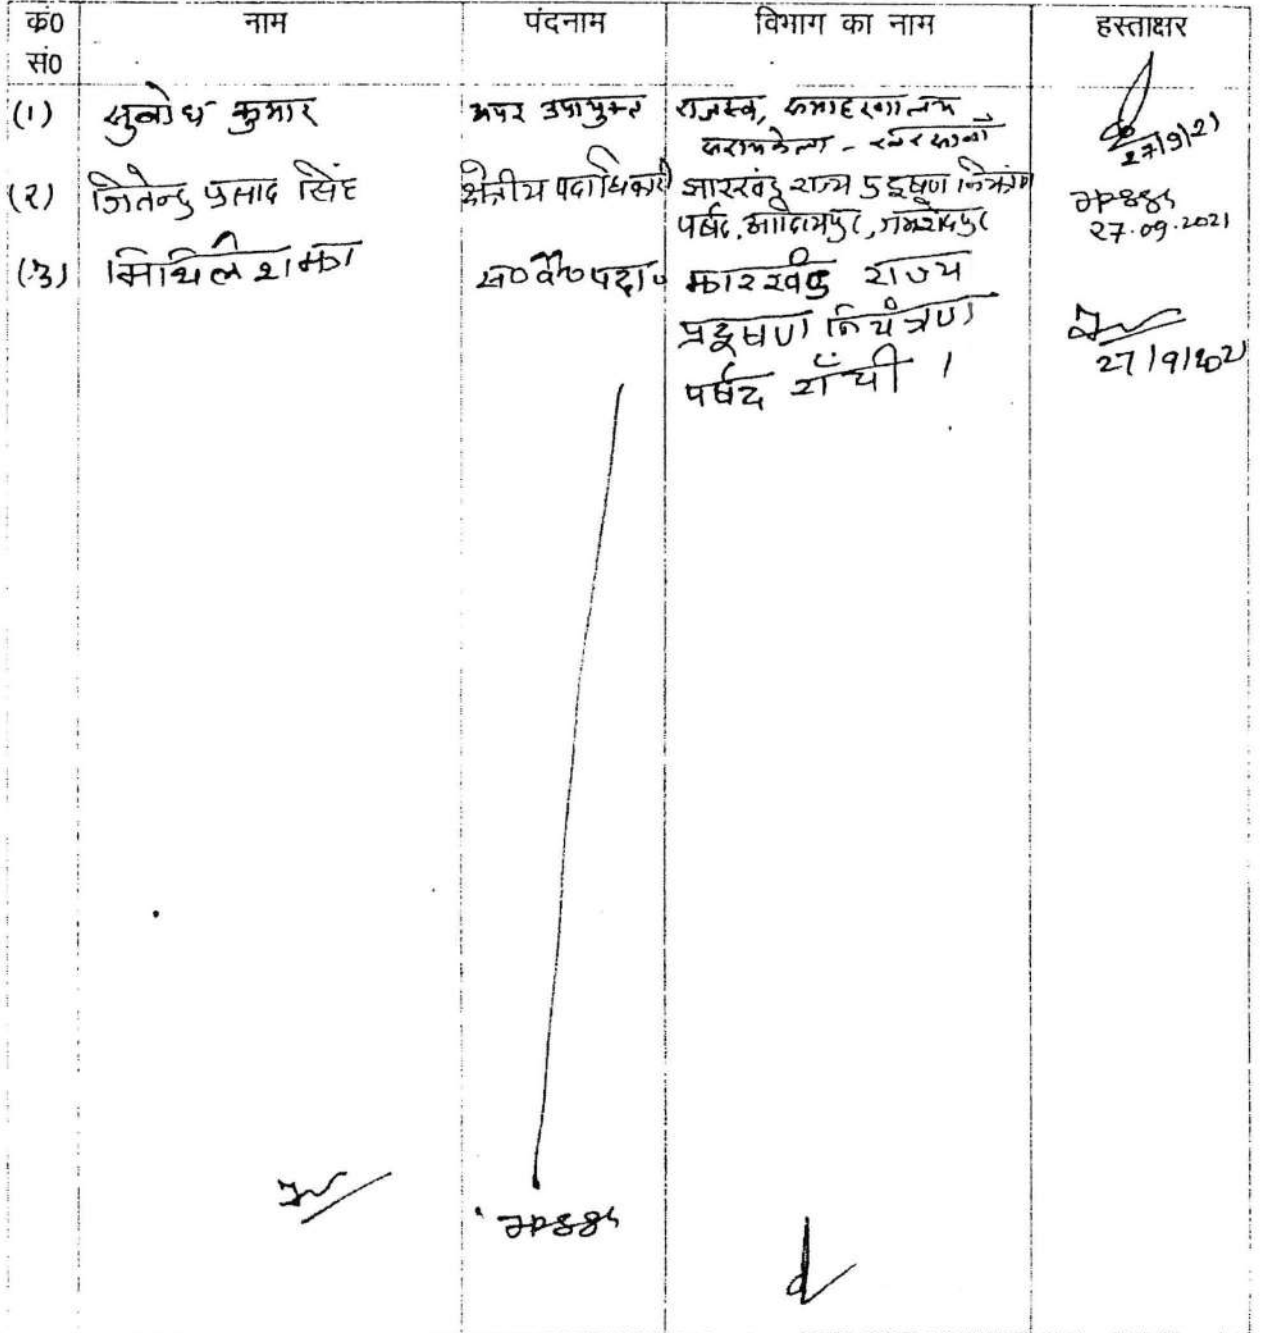 कं० नाम पंदनाम विभाग का नाम हस्ताक्षर
सं०
(1) सुबोध कुमार अपर उपायुक्त राजस्व, समाहरणालय
सरायकेला - खरसावाँ
27/9/21
(२) जितेन्द्र प्रसाद सिंह क्षेत्रीय पदाधिकारी झारखंड राज्य प्रदूषण नियंत्रण
पर्षद, आदित्यपुर, जमशेदपुर
27.09.2021
(3) मिथिलेश झा स०वै०पदा० झारखंड राज्य
प्रदूषण नियंत्रण
पर्षद राँची ।
27/9/202